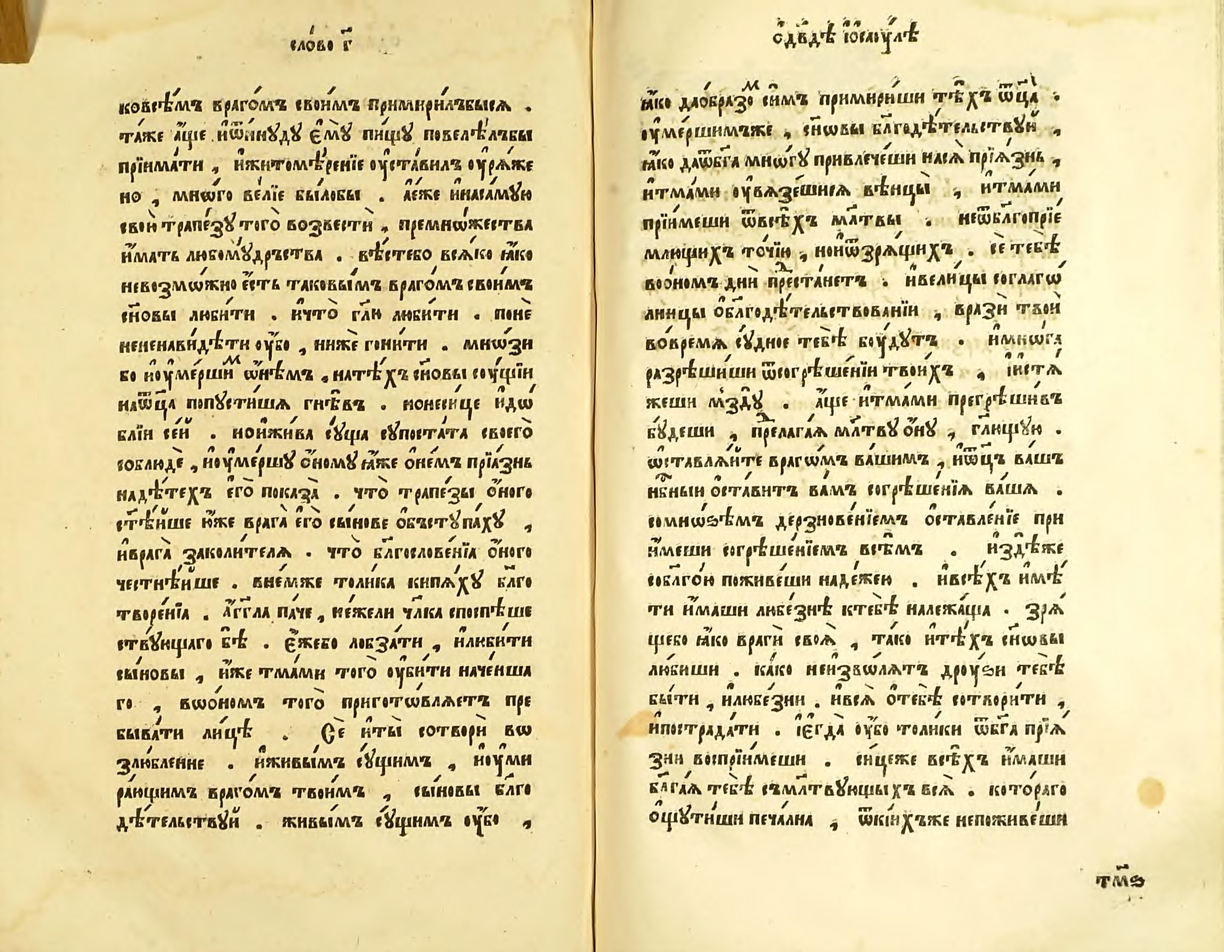 сло́во г҃
ковсѣ́мъ враго́мъ свои́мъ примири́лъбысѧ .
та́же а҆́ще и҆ѿи́нꙋдꙋ є҆мꙋ̀ пи́щꙋ повелѣ́лъбы
прїима́ти , и҆житомѣ́ренїе оу҆ста́вилъ оу҆рѧ́же
но , мнѡ́го ве́лїе бы́лобы . а҆е́же и҆наса́мꙋю
свою̀ трапе́зꙋ того̀ возвестѝ , премнѡ́жества
и҆́мать любомꙋ́дрьства . вѣ́стебо всѧ́ко ꙗ҆́ко
невозмѡ́жно є҆́сть таковы́мъ враго́мъ свои́мъ
сн҃овы люби́ти . и҆что̀ гл҃ю люби́ти . поне
нененави́дѣти оу҆́бо , ниже гони́ти . мнѡ́зи
бо и҆оу҆ме́ршим ѡ҆́нѣмъ , натѣ́хъ сн҃овы сꙋ́щїи
наѿц҃а попꙋсти́шѧ гнѣ́въ . нонеси́це и҆дѡ́
блїи се́й . нои҆жи́ва сꙋ́ща сꙋпоста́та своего̀
соблюдѐ , и҆оу҆ме́ршꙋ ѻ҆́номꙋ ꙗ҆́же ѻ҆не́мъ прїѧ́знь
надѣ́техъ є҆го̀ показа̀ . что̀ трапе́зы ѻ҆́ного
ст҃ѣ́йше ю҆́же врага̀ є҆го̀ сы́нове ѻ҆бъстꙋпа́хꙋ ,
и҆врага̀ заколи́телѧ . что̀ бл҃гослове́нїа ѻ҆́ного
честнѣ́йше . вне́мже толи́ка кипѧ́хꙋ бл҃го
творе́нїа . а҆́гг҃ла па́че , не́жели чл҃ка споспѣ́ше
ствꙋющаго бѣ̀ . є҆́жебо лобза́ти , и҆люби́ти
сы́новы , и҆́же тма́ми того̀ оу҆би́ти наче́нша
го , вѡ́номъ того̀ приготѡвлѧ́етъ пре
быва́ти лицѣ̀ . Сѐ и҆ты̀ сотворѝ вѡ
злю́бление . и҆живы́мъ сꙋ́щимъ , и҆оу҆ми
ра́ющимъ враго́мъ твои́мъ , сы́новы бл҃го
дѣ́тельствꙋй . живы́мъ сꙋ́щимъ оу҆́бо ,
ѻ҆дв҃дѣ і҆ѻсаꙋ́лѣ
ꙗ҆́ко даѻбразом си́мъ примири́ши тѣ́хъ ѿц҃а .
оу҆ме́ршимъже , сн҃овы бл҃годѣ́тельствꙋй ,
ꙗ҆́ко даѿбг҃а мнѡ́гꙋ привлече́ши насѧ̀ прїѧ́знь ,
и҆тма́ми оу҆вѧзе́шисѧ вѣнцы̀ , и҆тма́ми
прїи́меши ѿвсѣ́хъ мл҃твы . неѿблагопрїе́
млющихъ то́чїю , нои҆ѿзрѧ́щихъ . сѐ тебѣ̀
воѻ́номъ днѝ предста́нетъ . и҆вели́цы соглаго́
лницы ѻ҆бл҃годѣ́тельствованїи , вразѝ твоѝ
вовре́мѧ сꙋ́дное тебѣ̀ бꙋ́дꙋтъ . и҆мнѡ́га
разрѣши́ши ѿсогрѣше́нїи твои́хъ , і҆истѧ́
жеши мздꙋ̀ . а҆́ще и҆тма́ми прегрѣши́въ
бꙋ́деши , предлага́ѧ мл҃твꙋ ѻ҆́нꙋ , гл҃ющꙋю .
ѡ҆ставлѧ́йте врагѡ́мъ ва́шимъ , и҆ѿц҃ъ ва́шъ
нб҃ныи ѻ҆ста́витъ ва́мъ согрѣше́нїѧ ва́шѧ .
сомнѡ́зѣмъ дерзнове́нїемъ ѻ҆ставле́нїе при
и҆́меши согрѣше́нїемъ всѣ́мъ . и҆здѣ́же
собл҃го́ю поживе́ши наде́жею . и҆всѣ́хъ и҆мѣ́
ти и҆́маши любе́знѣ ктебѣ̀ належа́ща . зрѧ́
щебо ꙗ҆́ко врагѝ своѧ̀ , та́ко и҆тѣ́хъ сн҃овы
лю́биши . ка́ко неи҆звѡ́лѧтъ дрꙋ́зи тебѣ̀
бы́ти , и҆любе́знии . и҆всѧ̀ ѻ҆тебѣ̀ сотвори́ти ,
и҆пострада́ти . і҆є҆гда̀ оу҆́бо толи́ки ѿбг҃а прїѧ́
зни воспрїи́меши . си́цеже всѣ́хъ и҆́маши
бл҃га́ѧ тебѣ̀ съмл҃твꙋющыхъ всѧ̀ . кото́раго
ѻ҆щꙋти́ши печа́лна , ѿки́ихъже непоживе́ши